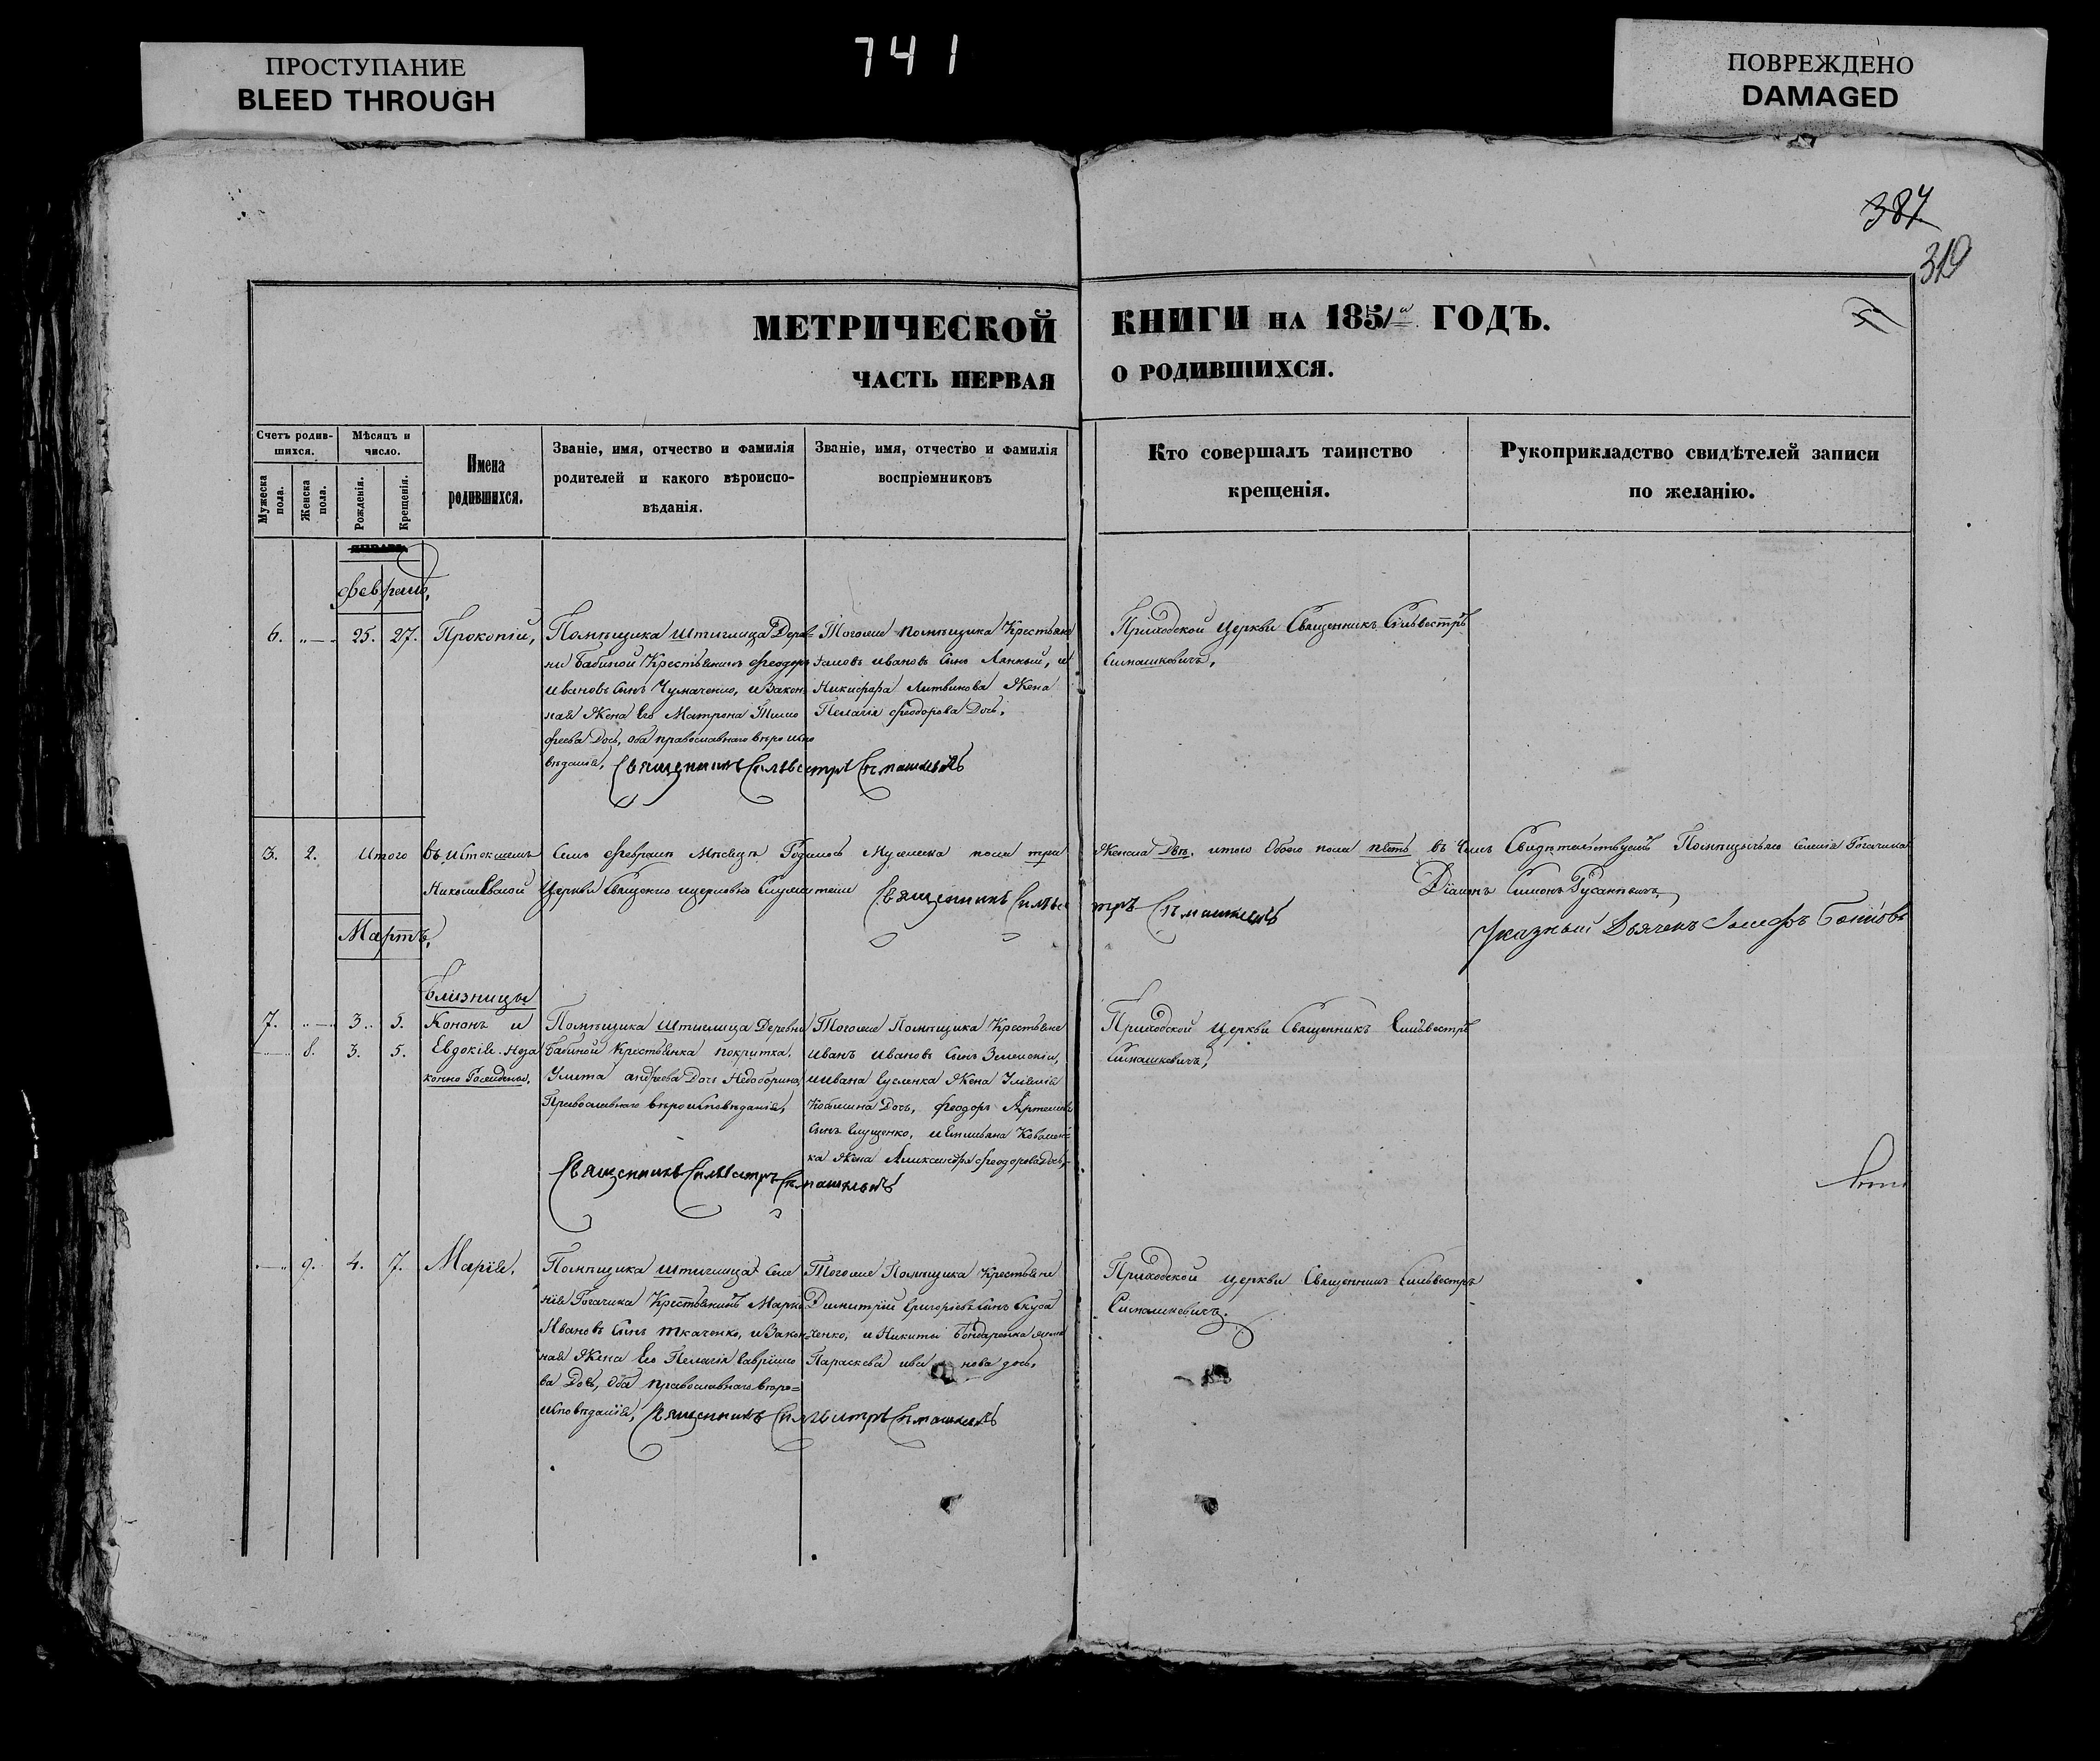 ПРОСТУПАНИЕ
BLEED THROUGH
741
ПОВРЕЖДЕНО
DAMAGED
387
319
МЕТРИЧЕСКОЙ КНИГИ НА 1851 ГОДЪ.
ЧАСТЬ ПЕРВАЯ О РОДИВШИХСЯ.
Счетъ родив-
шихся.
Мужеска пола.
Женска пола.
Мѣсяцъ и
число.
Рожденія.
Крещенія.
Имена
родившихся.
Званіе, имя, отчество и фамилія
родителей и какого вѣроиспо-
вѣданія.
Званіе, имя, отчество и фамилія
воспріемниковъ
Кто совершалъ таинство
крещенія.
Рукоприкладство свидѣтелей записи
по желанію.
январь.
февраль,
6. 25. 27. Прокопій,
Помѣщика Штиглица Дерев-
ни Бабиной Крестьянинъ Феодоръ
Ивановъ Сынъ Чумаченко, и Закон
ная Жена Его Матрона Тимо
феева Дочь, оба православнаго вѣро испо
вѣданія, Священникъ Силвестръ Симашкевичъ
Тогоже помѣщика Крестьяне
Ивановъ Сынъ и
Никифора Литвинова Жена
Пелагія Феодорова Дочь,
Приходской Церкви Священникъ Сильвестръ
Симашкевичъ,
3. 2. Итого въ истекшемъ Семъ Февралѣ Мѣсяцѣ Родилось Мужеска пола три Женска двѣ, итого Обоего пола пять въ Чемъ Свидѣтельствуемъ Помѣщичьяго селенія Рогачика
Николаевской Церкви Священно и церковно Служители Священникъ Силвестръ Симашкевичъ Діаконъ Симонъ
Указный Дьячекъ Іосифъ
Мартъ,
Близнецы
7. 3. 5. Кононъ и
8. 3. 5. Евдокія неза
конно Рожденые,
Помѣщика Штиглица Деревни
Бабиной Крестьянка покритка,
Улита Андреева Дочь
Православнаго вѣроисповѣданія,
Священникъ Силвестръ Симашкевичъ
Тогоже Помѣщика Крестьяне
Иванъ Ивановъ Сынъ
и Ивана Жена
Дочь, Феодоръ Артемовъ
Сынъ и Емельяна Ковален-
ка Жена Александра Феодорова Дочь,
Приходской Церкви Священникъ Сильвестръ
Симашкевичъ,
9. 4. 7. Марія,
Помѣщика Штиглица Селе
нія Рогачика Крестьянинъ Марко
Ивановъ Сынъ Ткаченко, и Закон
ная Жена Его Пелагія Гавріило
ва Дочь, Оба православнаго вѣро=
исповѣданія, Священникъ Силвестръ Симашкевичъ
Тогоже Помѣщика Крестьяне
Димитрій Григорьевъ Сынъ
и Никиты Бондаренка жена
Параскева Ива нова дочь,
Приходской Церкви Священникъ Сильвестръ
Симашкевичъ.